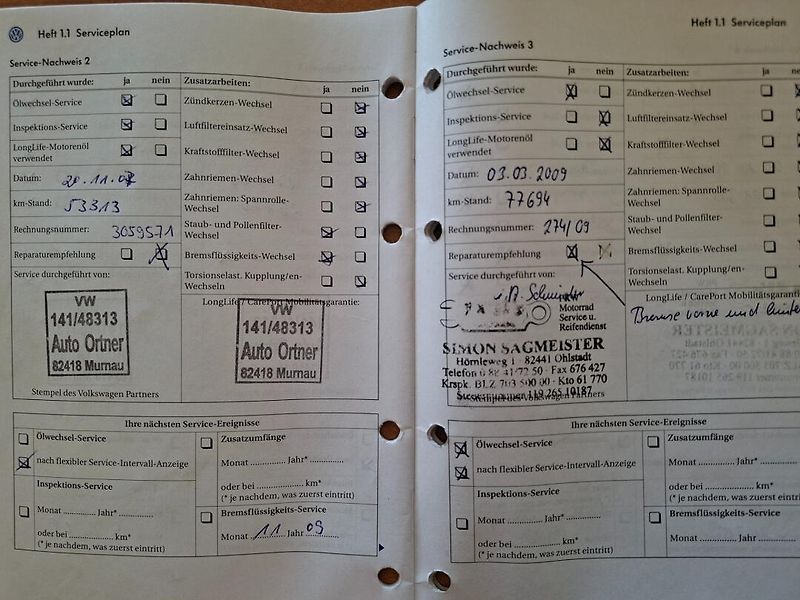 Heft 1.1 Serviceplan
Service-Nachweis 2
Durchgeführt wurde: ja nein
Ölwechsel-Service
Inspektions-Service
LongLife-Motorenöl
verwendet
Datum: 20.11.07
km-Stand: 53313
Rechnungsnummer: 3059571
Reparaturempfehlung
Service durchgeführt von:
VW
141/48313
Auto Ortner
82418 Murnau
Stempel des Volkswagen Partners
Zusatzarbeiten: ja nein
Zündkerzen-Wechsel
Luftfiltereinsatz-Wechsel
Kraftstofffilter-Wechsel
Zahnriemen-Wechsel
Zahnriemen: Spannrolle-
Wechsel
Staub- und Pollenfilter-
Wechsel
Bremsflüssigkeits-Wechsel
Torsionselast. Kupplung/en-
Wechsel
LongLife / CarePort Mobilitätsgarantie:
VW
141/48313
Auto Ortner
82418 Murnau
Ihre nächsten Service-Ereignisse
Ölwechsel-Service
nach flexibler Service-Intervall-Anzeige
Inspektions-Service
Monat .............. Jahr* ..............
oder bei ...................... km*
(* je nachdem, was zuerst eintritt)
Zusatzumfänge
Monat .............. Jahr* ..............
oder bei ...................... km*
(* je nachdem, was zuerst eintritt)
Bremsflüssigkeits-Service
Monat 11 Jahr 09
Heft 1.1 Serviceplan
Service-Nachweis 3
Durchgeführt wurde: ja nein
Ölwechsel-Service
Inspektions-Service
LongLife-Motorenöl
verwendet
Datum: 03.03.2009
km-Stand: 77694
Rechnungsnummer: 274/09
Reparaturempfehlung
Service durchgeführt von:
Motorrad
Service u.
Reifendienst
SIMON SAGMEISTER
Hörnleweg 1 · 82441 Ohlstadt
Telefon 0 88 41/72 50 · Fax 676 427
Krspk. BLZ 703 500 00 · Kto 61 770
Steuernummer 119 265 10187
Stempel des Volkswagen Partners
Zusatzarbeiten: ja
Zündkerzen-Wechsel
Luftfiltereinsatz-Wechsel
Kraftstofffilter-Wechsel
Zahnriemen-Wechsel
Zahnriemen: Spannrolle-
Wechsel
Staub- und Pollenfilter-
Wechsel
Bremsflüssigkeits-Wechsel
Torsionselast. Kupplung/en-
Wechsel
LongLife / CarePort Mobilitätsgaranti
Bremse vorne und
Ihre nächsten Service-Ereignisse
Ölwechsel-Service
nach flexibler Service-Intervall-Anzeige
Inspektions-Service
Monat .............. Jahr* ..............
oder bei ...................... km*
(* je nachdem, was zuerst eintritt)
Zusatzumfänge
Monat .............. Jahr* ..............
oder bei ...................... km*
(* je nachdem, was zuerst eintritt)
Bremsflüssigkeits-Service
Monat .............. Jahr ..............